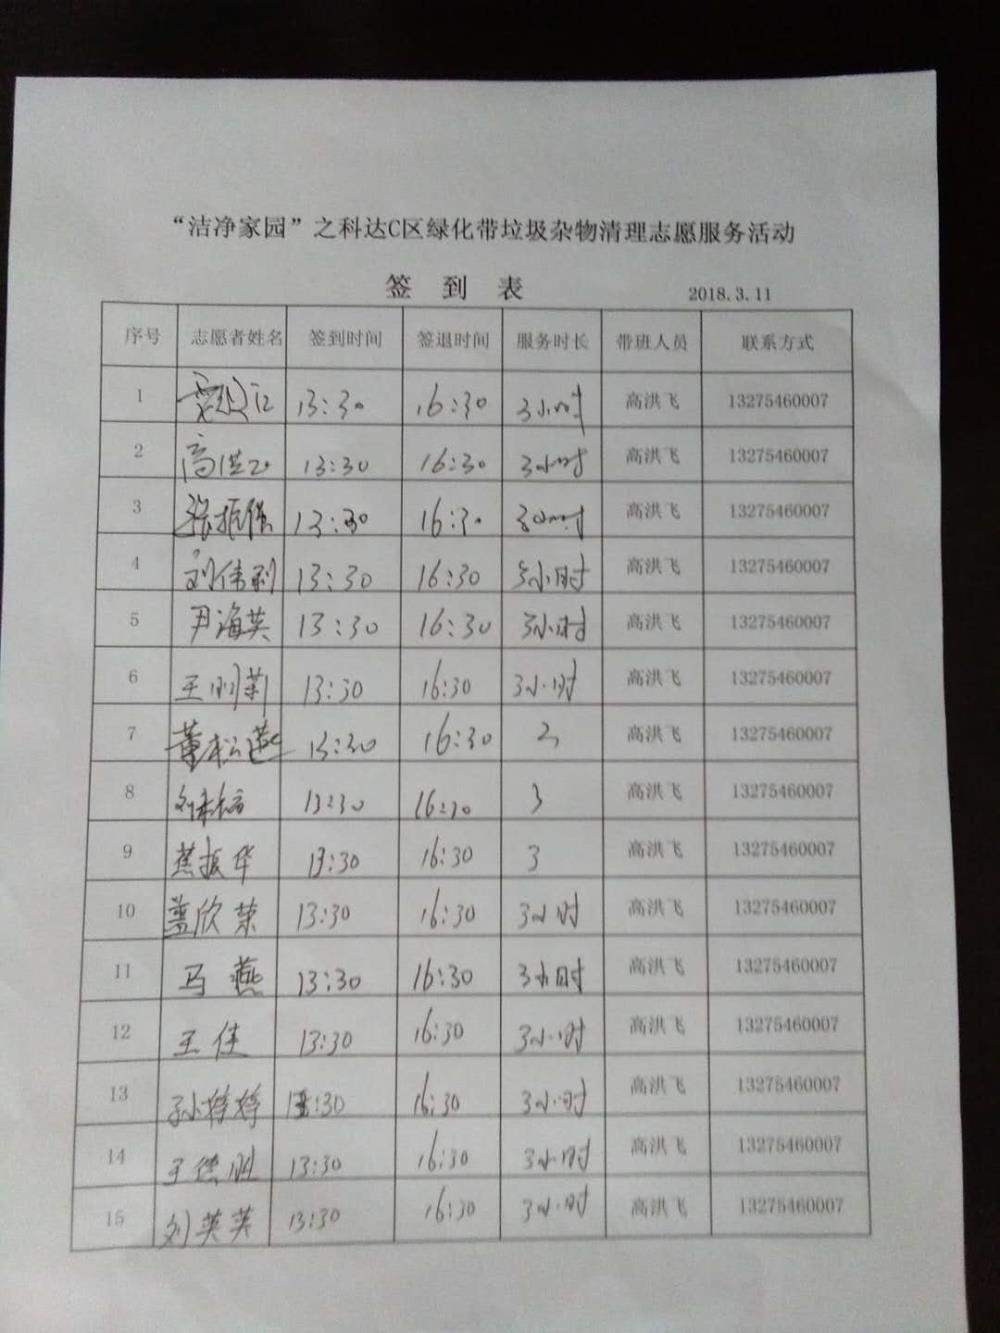 “洁净家园”之科达C区绿化带垃圾杂物清理志愿服务活动
签 到 表 2018.3.11
序号 志愿者姓名 签到时间 签退时间 服务时长 带班人员 联系方式
1 13:30 16:30 3小时 高洪飞 13275460007
2 高洪飞 13:30 16:30 3小时 高洪飞 13275460007
3 张振 13:30 16:30 3小时 高洪飞 13275460007
4 刘伟利 13:30 16:30 3小时 高洪飞 13275460007
5 尹海英 13:30 16:30 3小时 高洪飞 13275460007
6 王明莉 13:30 16:30 3小时 高洪飞 13275460007
7 董松莲 13:30 16:30 3 高洪飞 13275460007
8 刘 13:30 16:30 3 高洪飞 13275460007
9 蕉振华 13:30 16:30 3 高洪飞 13275460007
10 盖欣荣 13:30 16:30 3小时 高洪飞 13275460007
11 马燕 13:30 16:30 3小时 高洪飞 13275460007
12 王佳 13:30 16:30 3小时 高洪飞 13275460007
13 孙婷婷 13:30 16:30 3小时 高洪飞 13275460007
14 王德胜 13:30 16:30 3小时 高洪飞 13275460007
15 刘英芙 13:30 16:30 3小时 高洪飞 13275460007